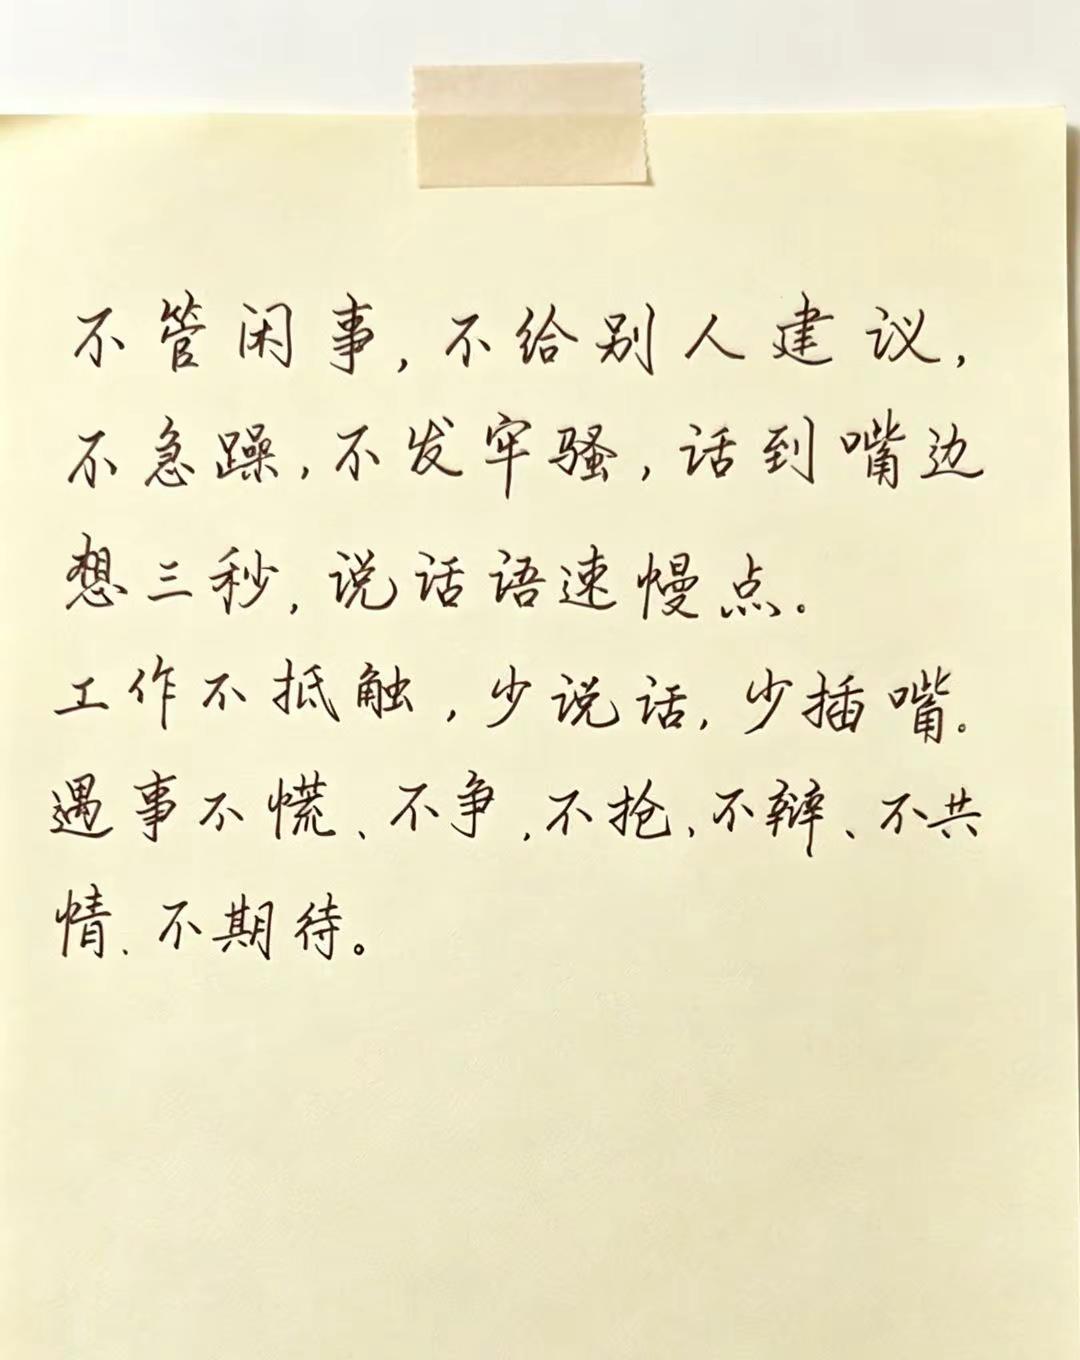 不管闲事,不给别人建议,
不急躁,不发牢骚,话到嘴边
想三秒,说话语速慢点。
工作不抵触,少说话,少插嘴。
遇事不慌、不争、不抢、不辩、不共
情、不期待。